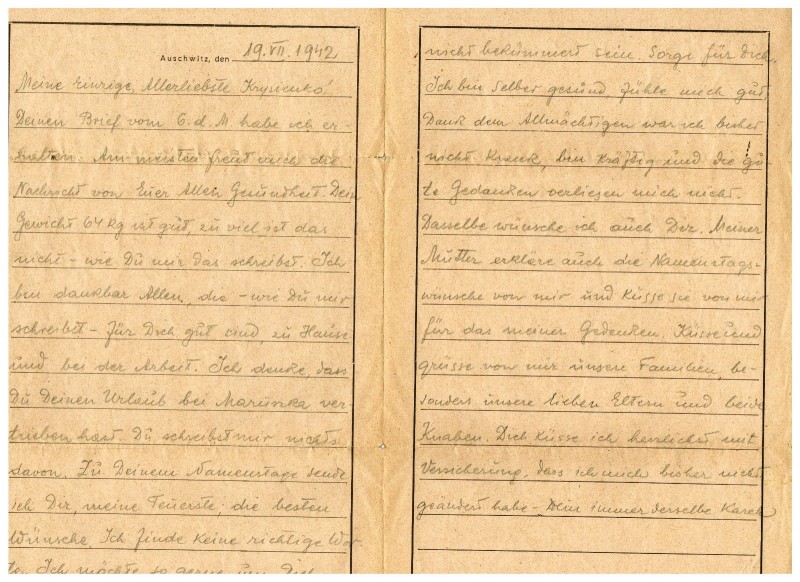 Auschwitz, den 19. VII. 1942
Meine einzige, Allerliebste Krysienko!
Deinen Brief vom 6. d. M habe ich er-
halten. Am meisten freut mich die
Nachricht von Euer Allen Gesundheit. Dein
Gewicht 64 kg ist gut, zu viel ist das
nicht - wie Du mir das schreibst. Ich
bin dankbar Allen, die - wie Du mir
schreibst - für Dich gut sind, zu Hause
und bei der Arbeit. Ich denke, dass
Du Deinen Urlaub bei Maruszka ver-
trieben hast. Du schreibst mir nichts
davon. Zu Deinem Namenstage sende
ich Dir, meine Teuerste, die besten
Wünsche. Ich finde keine richtige Wor-
te. Ich möchte so gerne um Dich
nicht bekümmert sein. Sorge für Dich.
Ich bin selber gesund fühle mich gut.
Dank dem Allmächtigen war ich bisher
nicht krank, bin kräftig und die gu-
te Gedanken verliesen mich nicht.
Dasselbe wünsche ich auch Dir. Meiner
Mutter erkläre auch die Namenstags-
wünsche von mir und küsse sie von mir
für das meiner Gedenken. Küsse und
grüsse von mir unsere Familien, be-
sonders unsere lieben Eltern und beide
Knaben. Dich küsse ich herzlichst mit
Versicherung, dass ich mich bisher nicht
geändert habe - Dein immer derselbe Karol